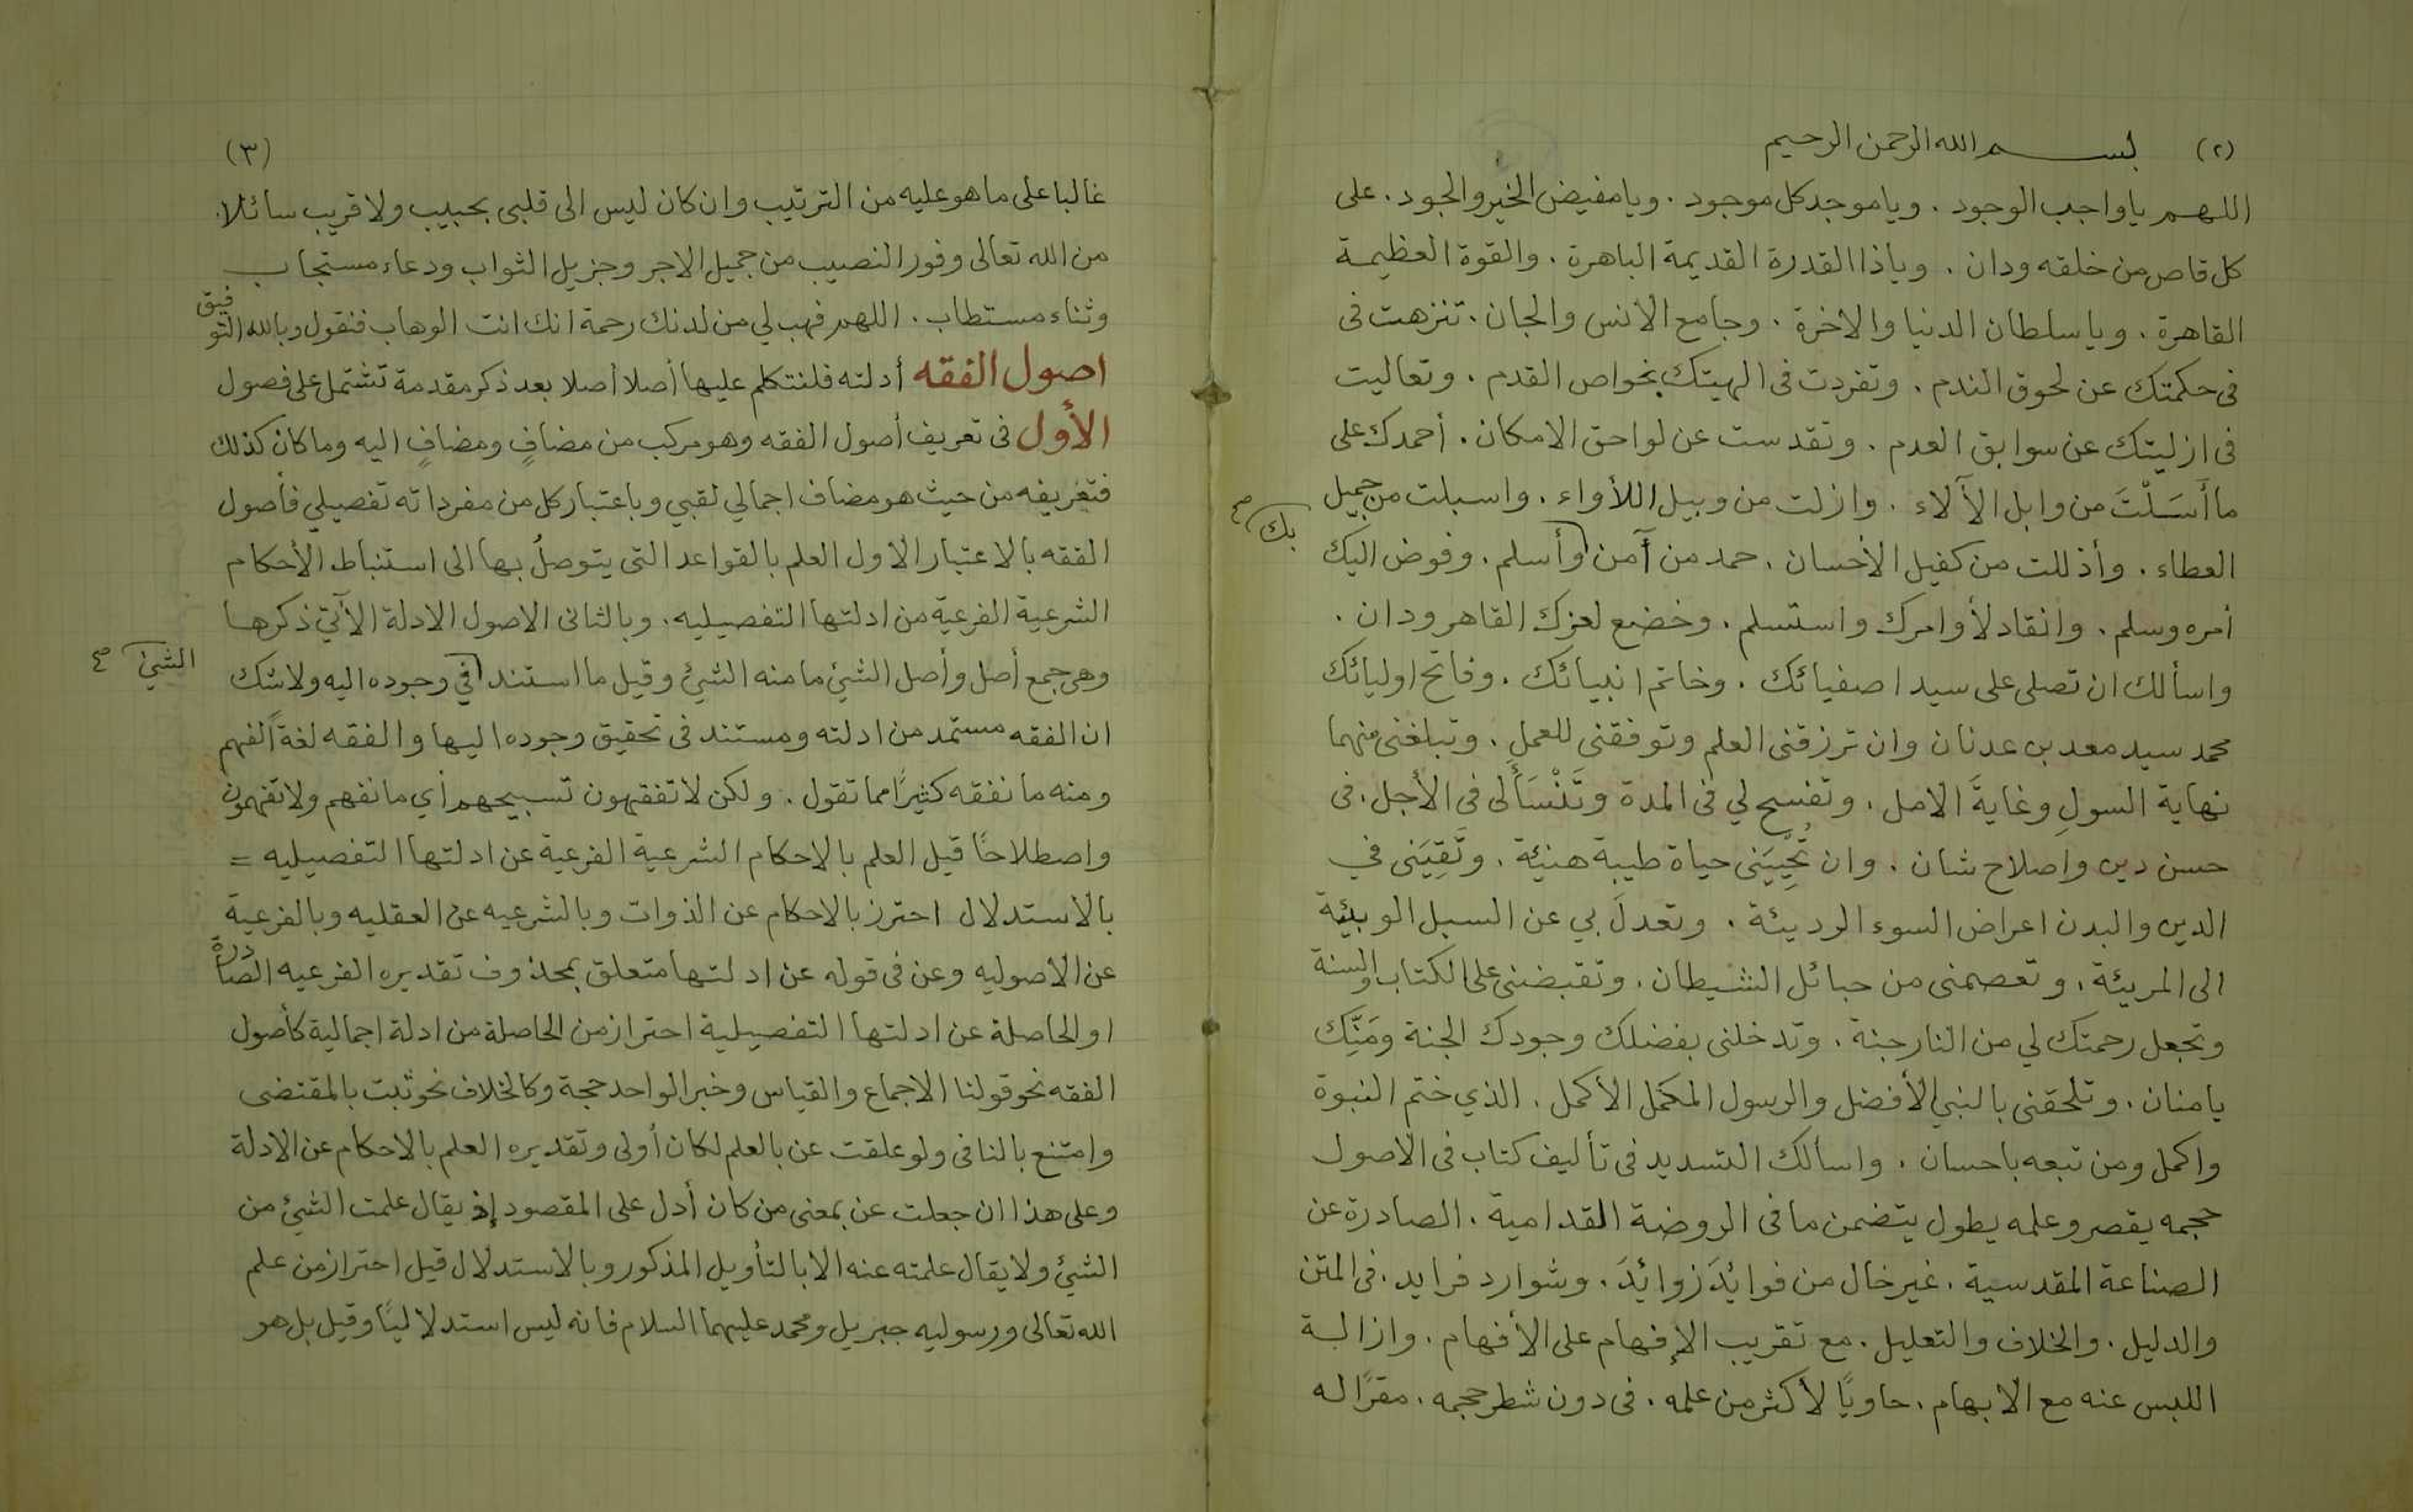 (٢) بسم الله الرحمن الرحيم
اللهم يا واجب الوجود . ويا موجد كل موجود . ويا مفيض الخير والجود . على
كل قاص من خلقه ودان . ويا ذا القدرة القديمة الباهرة . والقوة العظيمة
القاهرة . ويا سلطان الدنيا والاخرة . وجامع الانس والجان . تنزهت فى
فى حكمتك عن لحوق الندم . وتفردت فى الهيتك بخواص القدم . وتعاليت
فى ازليتك عن سوابق العدم . وتقدست عن لواحق الامكان . أحمدك على
ما أَسَلْتَ من وابل الآلاء . وازلت من وبيل اللأواء . واسبلت من جميل
العطاء . وأذللت من كفيل الأحسان . حمد من آمن وأسلم . وفوض اليك
بك صح
أمره وسلم . وانقاد لأوامرك واستسلم . وخضع لعزك القاهر ودان .
واسألك ان تصلى على سيد اصفيائك . وخاتم انبيائك . وفاتح اوليائك
محمد سيد معد بن عدنان وان ترزقنى العلم وتوفقنى للعمل . وتبلغنى منهما
نهاية السولِ وغايةَ الامل . وتفسح لي فى المدة وتَنْسَأَ لى فى الأجل . فى
حسن دين واصلاح شان . وان تُحْيِيَنى حياة طيبة هنيئة . وتَقِيَنى في
الدين والبدن اعراض السوء الرديئة . وتعدلَ بي عن السبل الوبيئة
الى المريئة . وتعصمنى من حبائل الشيطان . وتقبضنى على الكتاب والسنة
وتجعل رحمتك لي من النار جنة . وتدخلنى بفضلك وجودك الجنة ومَنِّك
يا منان . وتلحقنى بالنبي الأفضل والرسول المكمل الأكمل . الذي ختم النبوة
واكمل ومن تبعه باحسان . واسألك التسديد فى تأليف كتاب فى الاصول
حجمه يقصر وعلمه يطول يتضمن ما فى الروضة القدامية . الصادرة عن
الصناعة المقدسية . غير خال من فوائدَ زوائدَ . وشوارد فرايد . فى المتن
والدليل . والخلاف والتعليل . مع تقريب الإفهام على الأفهام . وازالة
اللبس عنه مع الابهام . حاويًا لأكثر من علمه . فى دون شطر حجمه . مقرًا له
(٣)
غالبا على ما هو عليه من الترتيب وان كان ليس الى قلبى بحبيب ولا قريب سائلا .
من الله تعالى وفور النصيب من جميل الاجر وجزيل الثواب ودعاء مستجاب
وثناء مستطاب . اللهم فهب لي من لدنك رحمة انك انت الوهاب فنقول وبالله التوفيق
اصول الفقه أدلته فلنتكلم عليها أصلا أصلا بعد ذكر مقدمة تشتمل على فصول
الأول فى تعريف أصول الفقه وهو مركب من مضافٍ ومضافٍ اليه وما كان كذلك
فتعريفه من حيث هو مضاف اجمالي لقبي وباعتبار كل من مفرداته تفصيلي فأصول
الفقه بالاعتبار الاول العلم بالقواعد التى يتوصلُ بها الى استنباط الأحكام
الشرعية الفرعية من ادلتها التفصيليه . وبالثانى الاصول الادلة الآتي ذكرها
وهى جمع أصل وأصل الشيئ ما منه الشيئ وقيل ما استند في وجوده اليه ولا شك
الشيئ صح
ان الفقه مستمد من ادلته ومستند فى تحقيق وجوده اليها والفقه لغةً الفهم
ومنه ما نفقه كثيرًا مما تقول . ولكن لا تفقهون تسبيحهم أي ما نفهم ولا تفهمون
واصطلاحًا قيل العلم بالاحكام الشرعية الفرعية عن ادلتها التفصيليه =
بالاستدلال احترز بالاحكام عن الذوات وبالشرعيه عن العقليه وبالفرعية
عن الاصوليه وعن فى قوله عن ادلتها متعلق بمحذوف تقديره الفرعيه الصادرة
او الحاصلة عن ادلتها التفصيلية احتراز من الحاصلة من ادلة اجمالية كأصول
الفقه نحو قولنا الاجماع والقياس وخبر الواحد حجة وكالخلاف نحو ثبت بالمقتضى
وامتنع بالنافى ولو علقت عن بالعلم لكان أولى وتقديره العلم بالاحكام عن الادلة
وعلى هذا ان جعلت عن بمعنى من كان أدل على المقصود إذ يقال علمت الشيئ من
الشيئ ولا يقال علمته عنه الا بالتأويل المذكور وبالاستدلال قيل احتراز من علم
الله تعالى ورسوليه جبريل ومحمد عليهما السلام فانه ليس استدلاليًا وقيل بل هو